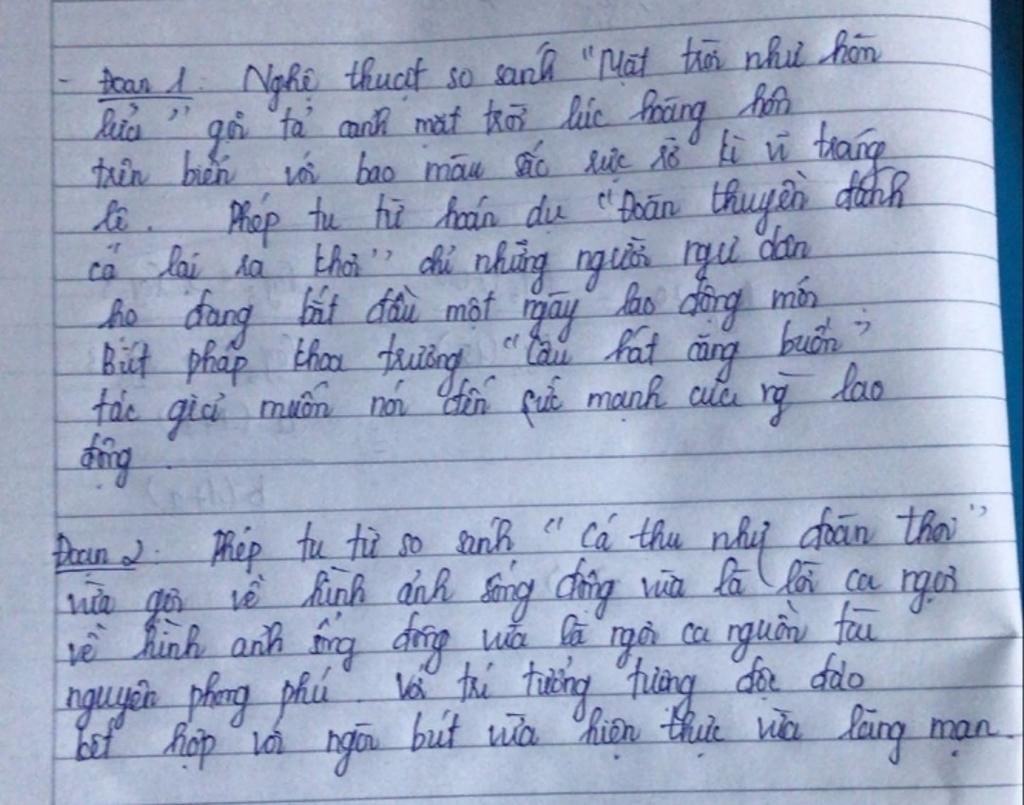 - Đoạn 1. Nghệ thuật so sánh "Mặt trời như hòn
lửa" gợi tả cảnh mặt trời lúc hoàng hôn
trên biển với bao màu sắc rực rỡ kì vĩ tráng
lệ. Phép tu từ hoán dụ "Đoàn thuyền đánh
cá lại ra khơi" chỉ những người ngư dân
họ đang bắt đầu một ngày lao động mới
Bút pháp khoa trương "Câu hát căng buồm"
tác giả muốn nói đến sức mạnh của ng̅ lao
động.
Đoạn 2. Phép tu từ so sánh "Cá thu như đoàn thoi"
vừa gợi về hình ảnh sống động vừa là lời ca ngợi
về hình ảnh sống động vừa là ngợi ca nguồn tài
nguyên phong phú. Với trí tưởng tượng độc đáo
kết hợp với ngòi bút vừa hiện thực vừa lãng mạn.